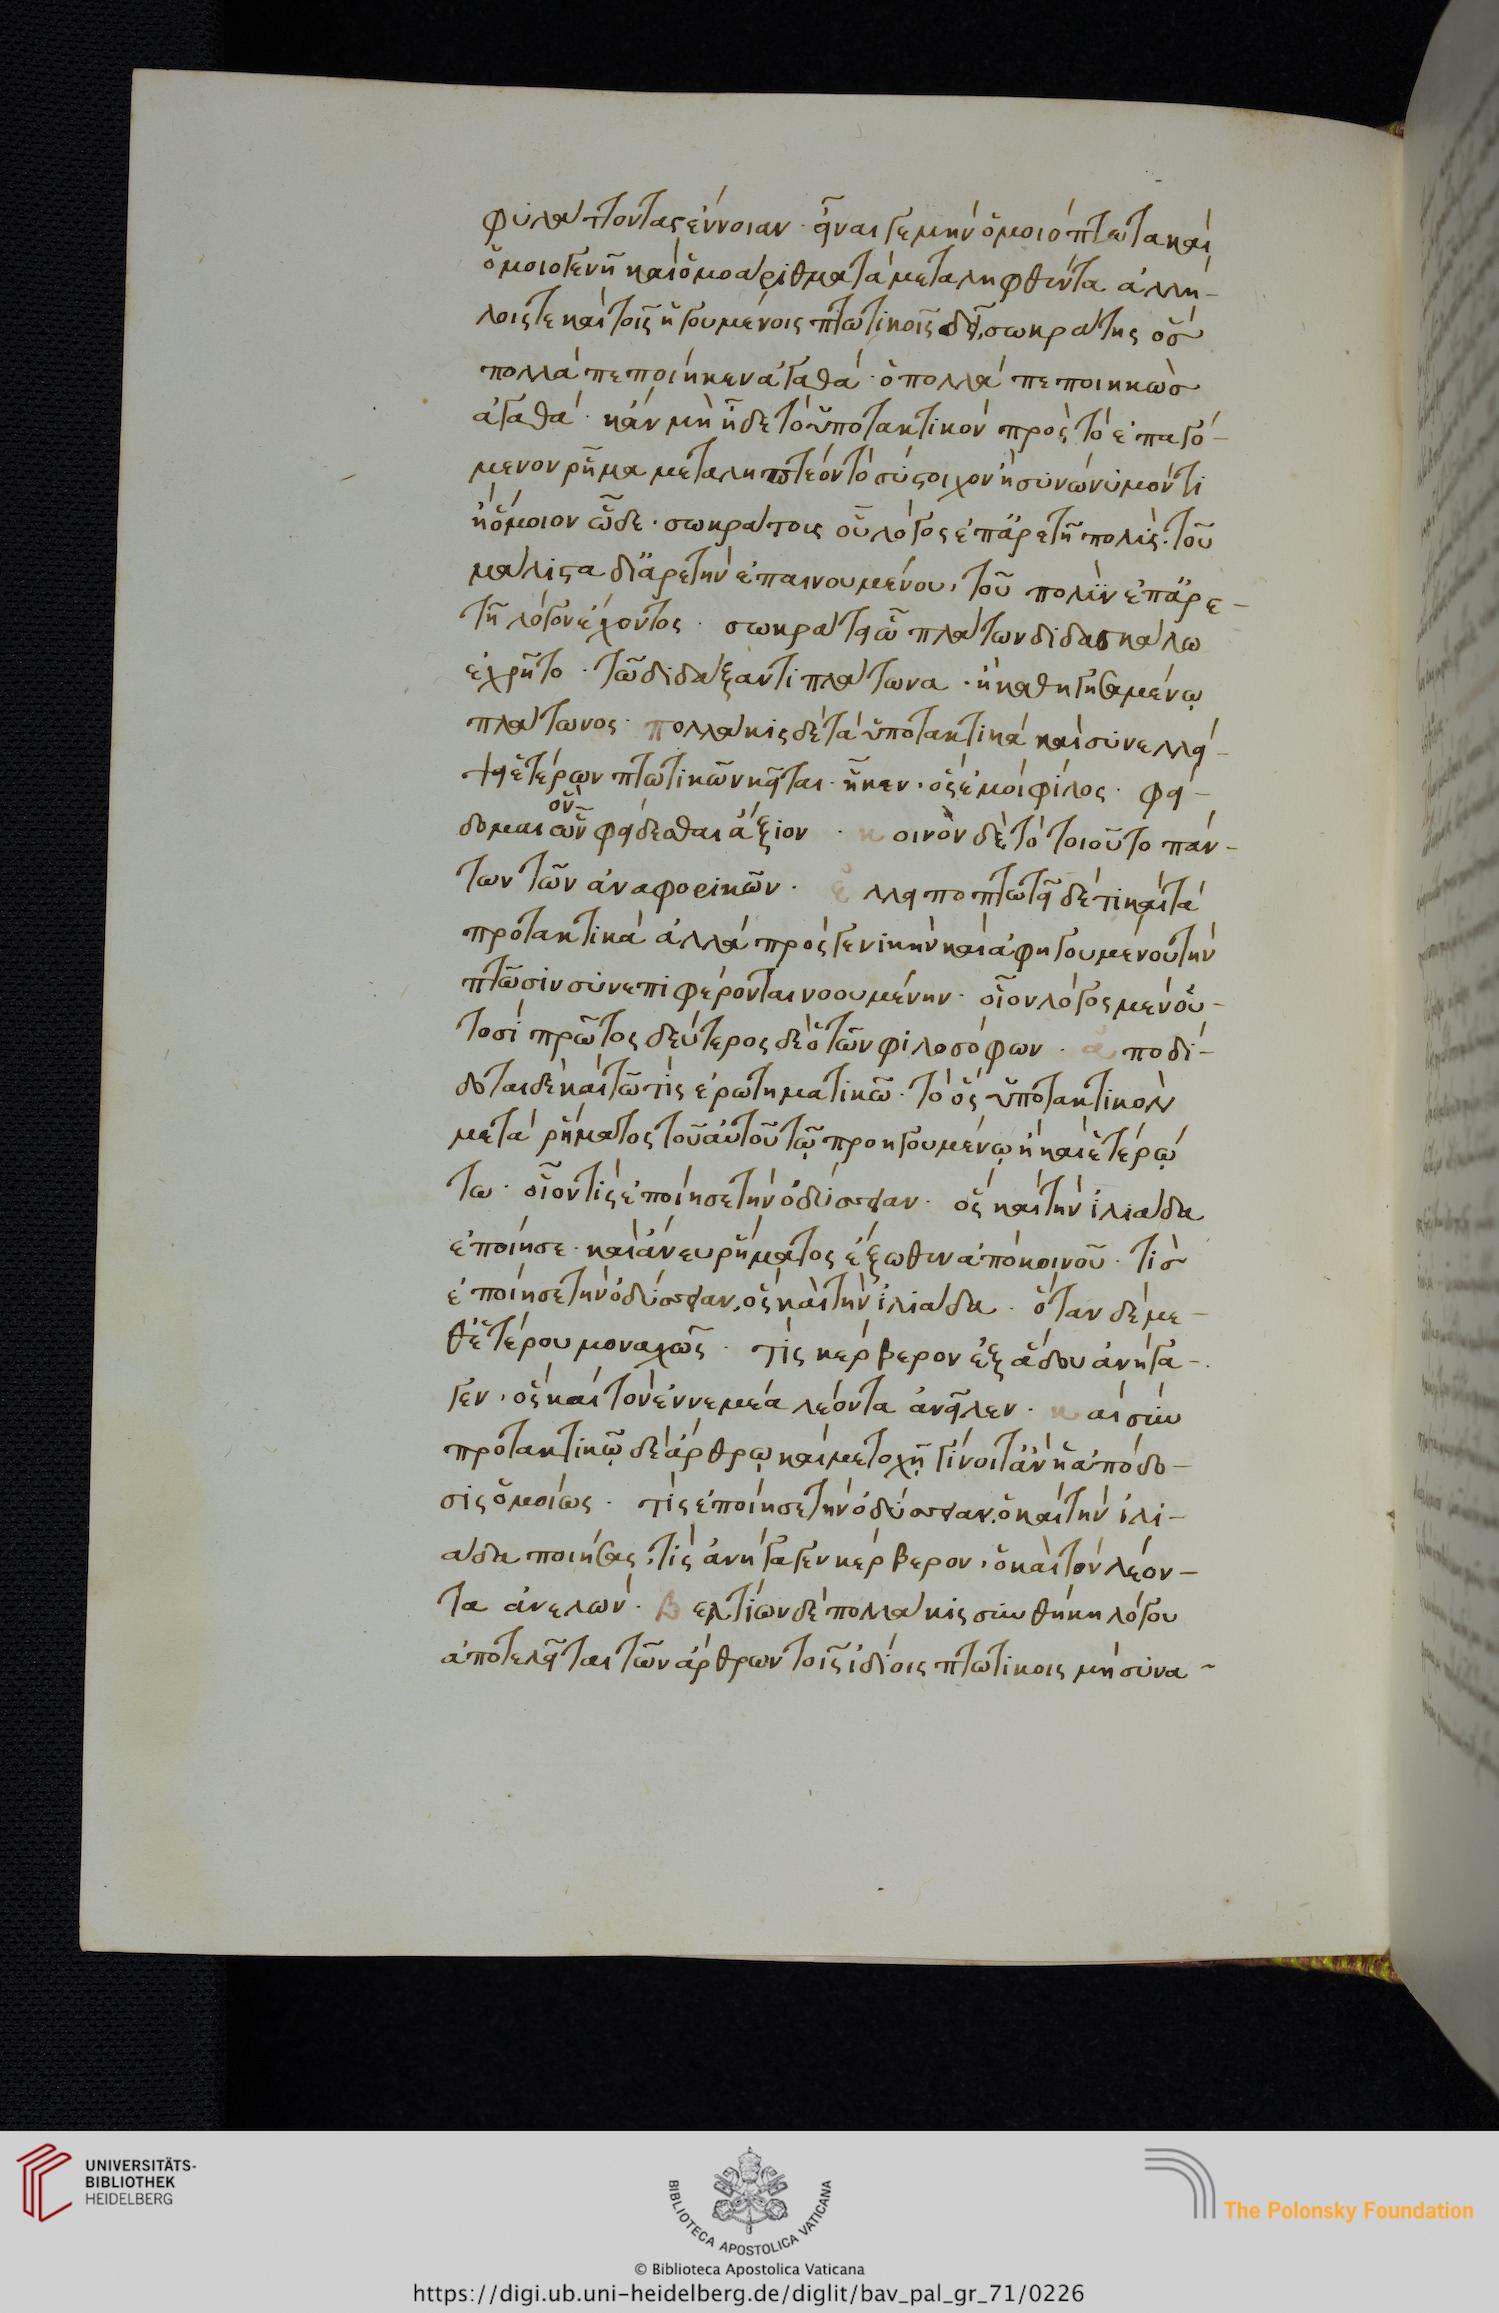 φυλάττοντας ἔννοιαν · εἶναι γε μὴν ὁμοιόπτωτα καὶ
ὁμοιογενῆ καὶ ὁμοάριθμα τὰ μεταληφθέντα ἀλλή-
λοις τε καὶ τοῖς ἡγουμένοις πτωτικοῖς σωκράτης ὃς
πολλὰ πεποίηκεν ἀγαθά · ὁ πολλὰ πεποιηκὼς
ἀγαθά · κἂν μὴ ᾖ δὲ τὸ ὑποτακτικὸν πρὸς τὸ ἐπαγό-
μενον ῥῆμα μεταληπτέον τὸ σύστοιχον ἢ συνώνυμόν τι
ἢ ὅμοιον ὧδε · σωκράτους οὗ λόγος ἐπ' ἀρετῇ πολύς · τοῦ
μάλιστα δι' ἀρετὴν ἐπαινουμένου, τοῦ πολὺν ἐπ' ἀρε-
τῇ λόγον ἔχοντος · σωκράτει ὧ πλάτων διδασκάλω
ἐχρῆτο · τῶ διδάξαντι πλάτωνα · ἢ καθηγησαμένῳ
πλάτωνος · πολλάκις δὲ τὰ ὑποτακτικὰ καὶ συνελλεί-
ψει ἑτέρων πτωτικῶν κεῖται · ἧκεν · ὃς ἐμοὶ φίλος · φεί-
δομαι ὧν φείδεσθαι ἄξιον · κοινὸν δὲ τὸ τοιοῦτο πάν-
των τῶν ἀναφορικῶν · ἐλλειποπτωτεῖ δέ τι καὶ τὰ
προτακτικὰ ἀλλὰ πρὸς γενικὴν καὶ ἀφηγουμένου τὴν
πτῶσιν συνεπιφέρονται νοουμένην · οἷον λόγος μὲν οὑ-
τοσὶ πρῶτος δεύτερος δὲ ὁ τῶν φιλοσόφων · ἀποδί-
δοται δὲ καὶ τῶ τίς ἐρωτηματικῶ · τὸ ὅς ὑποτακτικὸν
μετὰ ῥήματος τοῦ αὐτοῦ τῷ προηγουμένῳ ἢ καὶ ἑτέρῳ
τω · οἷον τίς ἐποίησε τὴν ὀδύσσειαν · ὃς καὶ τὴν ἰλιάδα
ἐποίησε · καὶ ἄνευ ῥήματος ἔξωθεν ἀπὸ κοινοῦ · τίς
ἐποίησε τὴν ὀδύσσειαν, ὃς καὶ τὴν ἰλιάδα · ὅταν δὲ με-
θ' ἑτέρου μοναχῶς · τίς κέρβερον ἐξ ἅδου ἀνήγα-
γεν, ὃς καὶ τὸν ἐν νεμέα λέοντα ἀνεῖλεν · καὶ σὺν
προτακτικῷ δὲ ἄρθρῳ καὶ μετοχῇ γίνοιτ' ἂν ἡ ἀπόδο-
σις ὁμοίως · τίς ἐποίησε τὴν ὀδύσσειαν, ὁ καὶ τὴν ἰλι-
άδα ποιήσας, τίς ἀνήγαγεν κέρβερον, ὁ καὶ τὸν λέον-
τα ἀνελών · βελτίων δὲ πολλάκις συνθήκη λόγου
ἀποτελεῖται τῶν ἄρθρων τοῖς ἰδίοις πτωτικοῖς μὴ συνα-
UNIVERSITÄTS-
BIBLIOTHEK
HEIDELBERG
BIBLIOTECA APOSTOLICA VATICANA
The Polonsky Foundation
© Biblioteca Apostolica Vaticana
https://digi.ub.uni-heidelberg.de/diglit/bav_pal_gr_71/0226